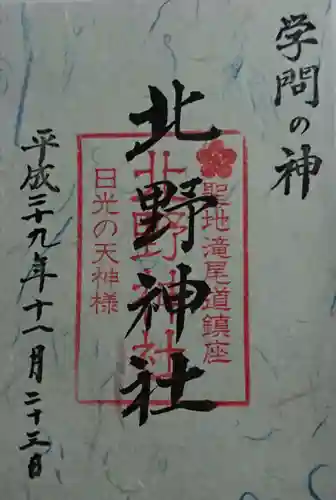 学問の神
聖地滝尾道鎮座
北野神社
北野神社
日光の天神様
平成二十九年十一月二十三日